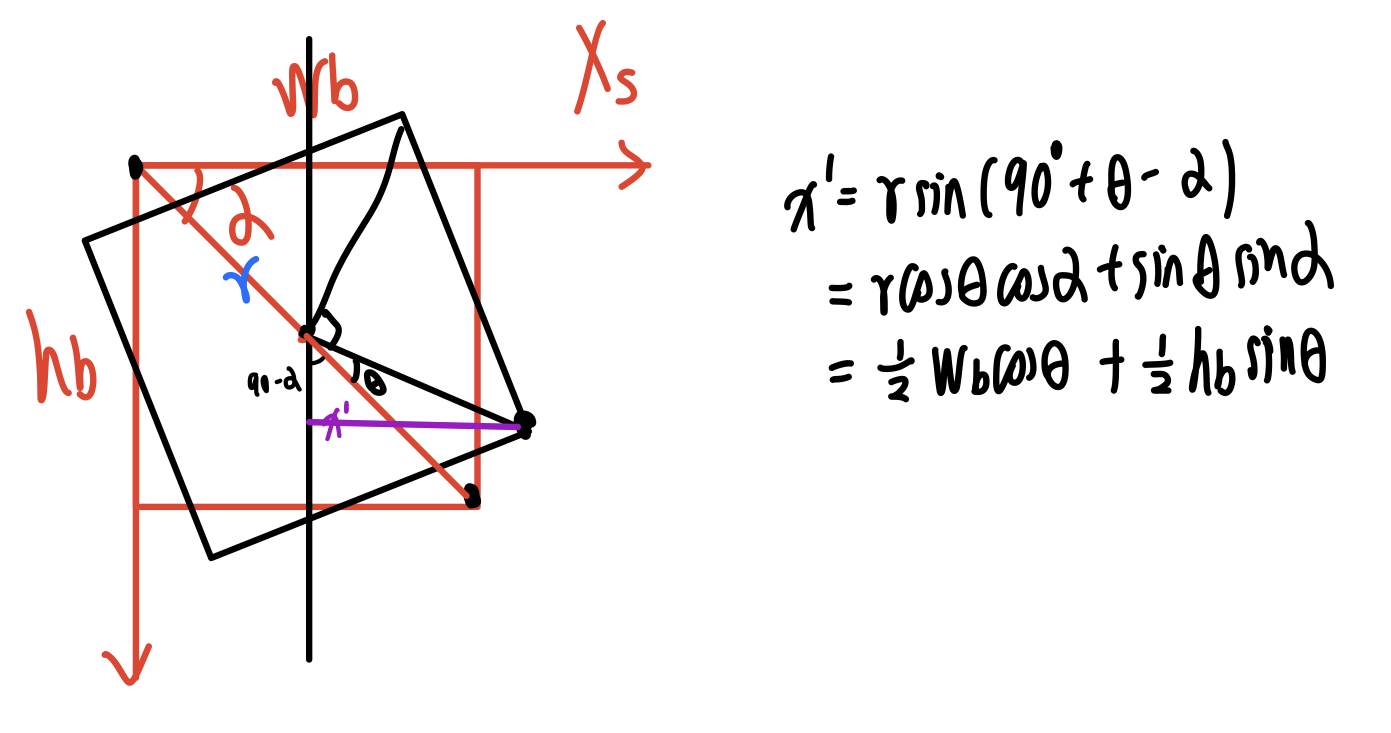 Wb
Xs
α
r
hb
90-α
θ
x'
x' = r sin (90° + θ - α)
= r cosθ cosα + sinθ sinα
= 1/2 Wb cosθ + 1/2 hb sinθ